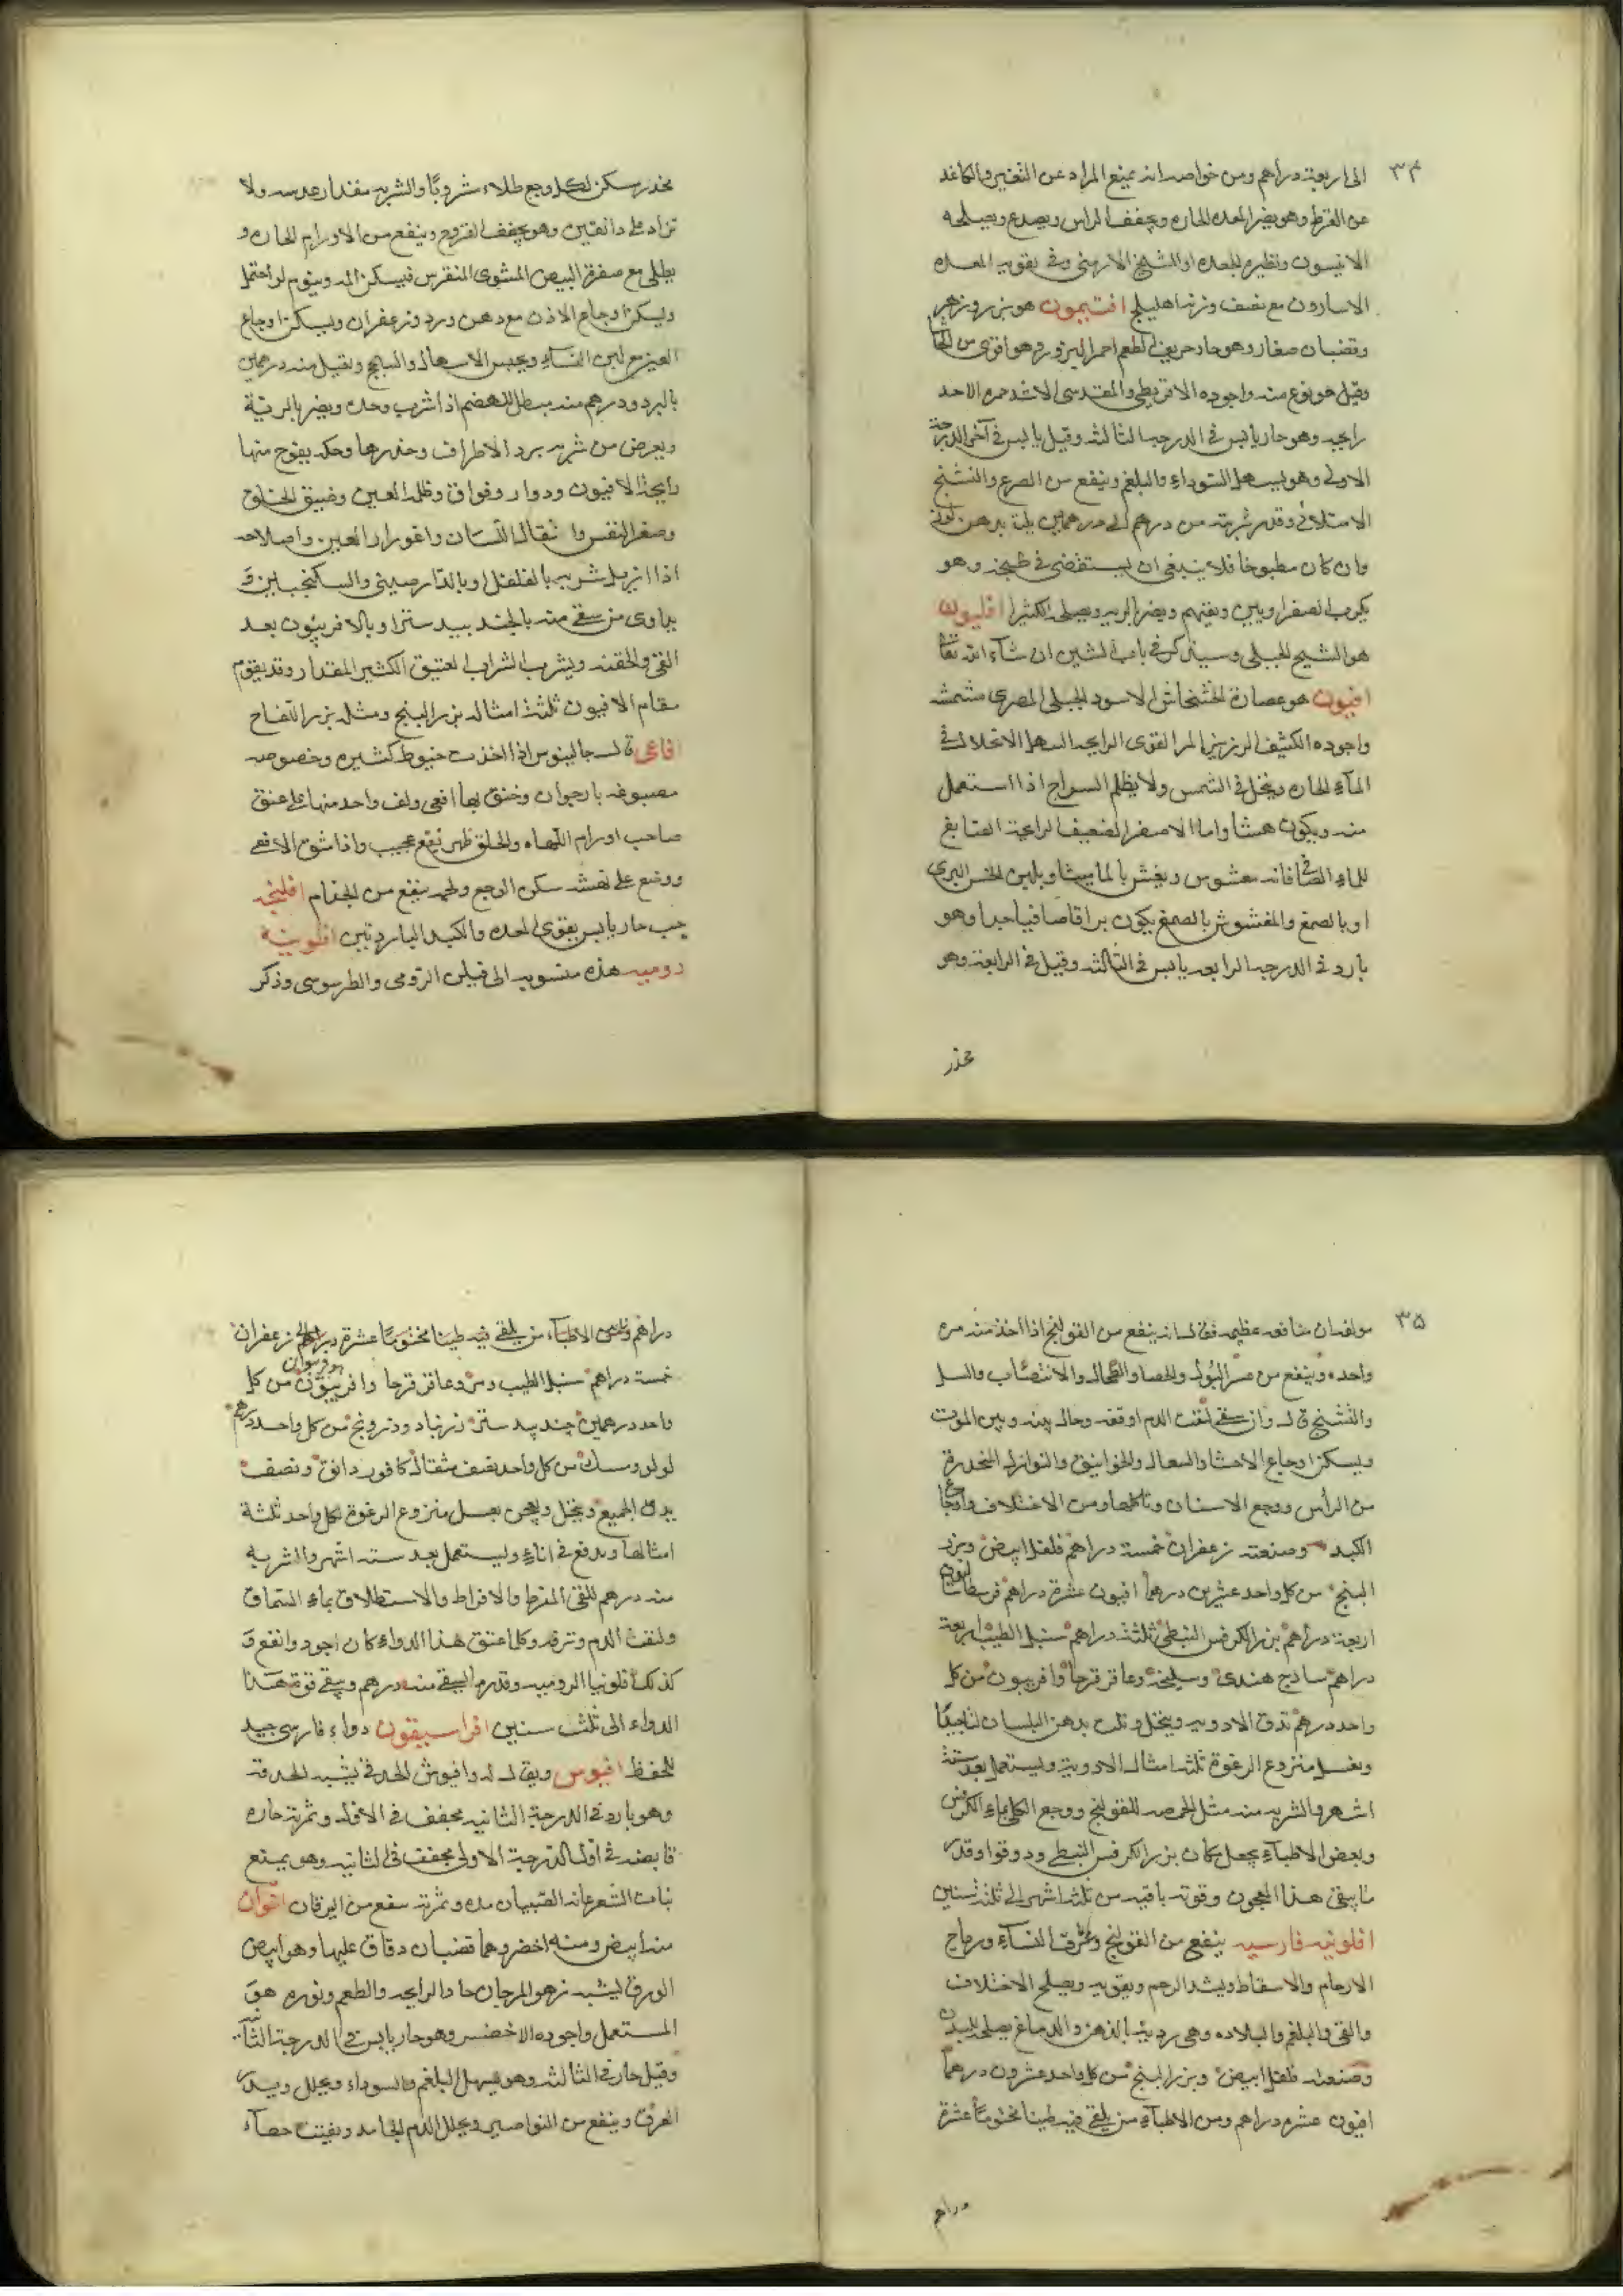 ٣٤
الى اربعة دراهم ومن خواصه انه يمنع المداد عن التغير والكاغد
عن القرض وهو يضر المعده الحاره ويجفف الراس ويصدع ويصلحه
الانيسون ونظيره للمعده او الشيح الارمنى وفى تقويه المعده
الاسارون مع نصف وزنه اهليلج افتيمون هو بزر وزهر
وقضبان صغار وهو حاد حريف الطعم احمر البزور وهو اقوى من الحاشا
وقيل هو نوع منه واجوده الاقريطى والمقدسى الاشد حمره الاحد
رايحه وهو حار يابس فى الدرجه الثالثه وقيل يابس فى آخر الدرجة
الاولى وهو يسهل السوداء والبلغم وينفع من الصرع والتشنج
الامتلائى وقدر شربته من درهم الى درهمين يلت بدهن لوز
وان كان مطبوخا فلا ينبغى ان يستقصى فى طبخه وهو
يكرب الصفراويين ويقيهم ويضر بالريه ويصلحه الكثيرا افليون
هو الشيح الجبلى وسيذكر فى باب الشين ان شآء الله تعا
افيون هو عصارة الخشخاش الاسود الجبلى المصرى مشمشه
واجوده الكثيف الرزين المر القوى الرايحه السهل الانحلال فى
المآء الحاره وينحل فى الشمس ولا يظلم السراج اذا استعمل
منه ويكون هشا واما الاصفر الضعيف الرايحة الصابغ
للماء الصافى فانه مغشوش ويغش بالماميثا وبلبن الخس البرى
او بالصمغ والمغشوش بالصمغ يكون براقا صافيا جدا وهو
بارد فى الدرجه الرابعه يابس فى الثالثه وقيل فى الرابعة وهو
مخدر
مخدر يسكن لكل وجع طلاء شروبًا والشربه مقدار عدسه ولا
تزاد على دانقين وهو يجفف القروح وينفع من الاورام الحاره و
يطلى مع صفرة البيض المشوى المنقرس فيسكن المه وينوم لو احتمل
ويسكن اوجاع الاذن مع دهن ورد وزعفران ويسكن اوجاع
العين مع لبن النسآء ويحبس الاسهال والسحج ونقيل منه درهمين
بالبرد ودرهم منه يبطل الهضم اذا شرب وحده ويضر بالريّة
ويعرض من شربه برد الاطراف وخدرها وحكه يفوح منها
رايحة الافيون ودوار وفواق وظلمة العين وضيق الخلق
وصغر النفس وانثقال اللسان واغورار العين واصلاحه
اذا ازيل شربه بالفلفل او بالدارصينى والسكنجبين و
يداوى من سقى منه بالجندبيدستر او بالافربيون بعد
القى والحقنه ويشرب الشراب العتيق الكثير المقدار وقد يقوم
مقام الافيون ثلثة امثاله بزر البنج ومثله بزر اللفاح
افاعى قال جالينوس اذا اخذت خيوط كثيره وخصوصه
مصبوغه بارجوان وخنق بها افعى ولف واحد منها على عنق
صاحب اورام اللهاه والحلق ظهر نفع عجيب واذا شق الافعى
ووضع على نهشه سكن الوجع ولحمه ينفع من الجذام افلنجه
حب حار يابس يقوى المعده والكبد الباردتين افلونيه
روميه هذه منسوبه الى فيلن الرومى والطرسوسى وذكر
٣٥
مولفه ان منافعه عظيمه فقال انه ينفع من القولنج اذا اخذ منه مره
واحده وينفع من عسر البول والحصا والطحال والانتصاب والسل
والتشنج قال وان سقى لنفث الدم اوقفه وحال بينه وبين الموت
ويسكن اوجاع الاحشا والسعال والخوانيق والنوازل المنحدرة
من الرأس ووجع الاسنان وتاكلها ومن الاختلاف واوجاع
الكبد وصنعته زعفران خمسة دراهم فلفل ابيض وبزر
البنج من كل واحد عشرين درهما افيون عشرة دراهم فرسطانيون
اربعة دراهم بزر الكرفس النبطى ثلثة دراهم سنبل الطيب اربعة
دراهم ساذج هندى وسليخه وعاقر قرحا وافربيون من كل
واحد درهم تدق الادويه وينخل وتلت بدهن البلسان لتا جيدًا
وبعسل منزوع الرغوة ثلثة امثال الادوية ويستعمل بعد ستة
اشهر والشربه منه مثل الحمصه للقولنج ووجع الكلى بماء الكرفس
وبعض الاطبآء يجعل مكان بزر الكرفس النبطى ودوقوا وقدر
ما يبقى هذا المعجون وقوته باقيه من ثلثة اشهر الى ثلث سنين
افلونيه فارسيه ينفع من القولنج وعرق النسآء ورياح
الارحام والاسقاط ويشد الرحم ويقويه ويصلح الاختلاف
والقى والبلغم والبلاده وهى رديئه بالذهن والدماغ يصلحه للبدن
وصنعته فلفل ابيض وبزر البنج من كل واحد عشرون درهما
افيون عشره دراهم ومن الاطبآء من يلقى فيه طينا مختومًا عشرة
دراهم
دراهم ومن الاطبآء من يلقى فيه طينا مختومًا عشرة دراهم زعفران
خمسة دراهم سنبل الطيب ومر وعاقر قرحا وافربيون من كل
واحد درهمين جندبيدستر زرنباد ودرونج من كل واحد درهم
لولو ومسك من كل واحد نصف مثقال كافور دانق ونصف
يدق الجميع وينخل ويعجن بعسل منزوع الرغوة لكل واحد ثلثة
امثالها ويدفع فى اناء ويستعمل بعد سته اشهر والشربه
منه درهم للقى المفرط والافراط والاستطلاق بماء السماق
ولنفث الدم ونزفه وكلما عتق هذا الدواء كان اجود وانفع و
كذلك افلونيا الروميه وقدر ما يسقى منه درهم ويبقى قوة هذا
الدواء الى ثلث سنين افراسيقون دواء فارسى جيد
للحفظ افيوس ويقال له وافيوش الحدقى يشبه الحدقه
وهو بارد فى الدرجة الثانيه مجفف فى الاولى وثمرته حاره
قابضه فى اول الدرجة الاولى مجفف فى الثانيه وهو يمنع
نبات الشعر عانة الصبيان مده وثمرته ينفع من اليرقان
منه ابيض ومنه اخضر وهما قضبان دقاق عليها وهو ابيض
الورق يشبه زهو المرجان حاد الرايحه والطعم ونوره هو
المستعمل واجوده الاخضر وهو حار يابس فى الدرجة الثانيه
وقيل حار فى الثالثه وهو يسهل البلغم والسوداء ويحلل ويدر
العرق وينفع من النواصير ويحلل الدم الجامد ويفتت حصآه